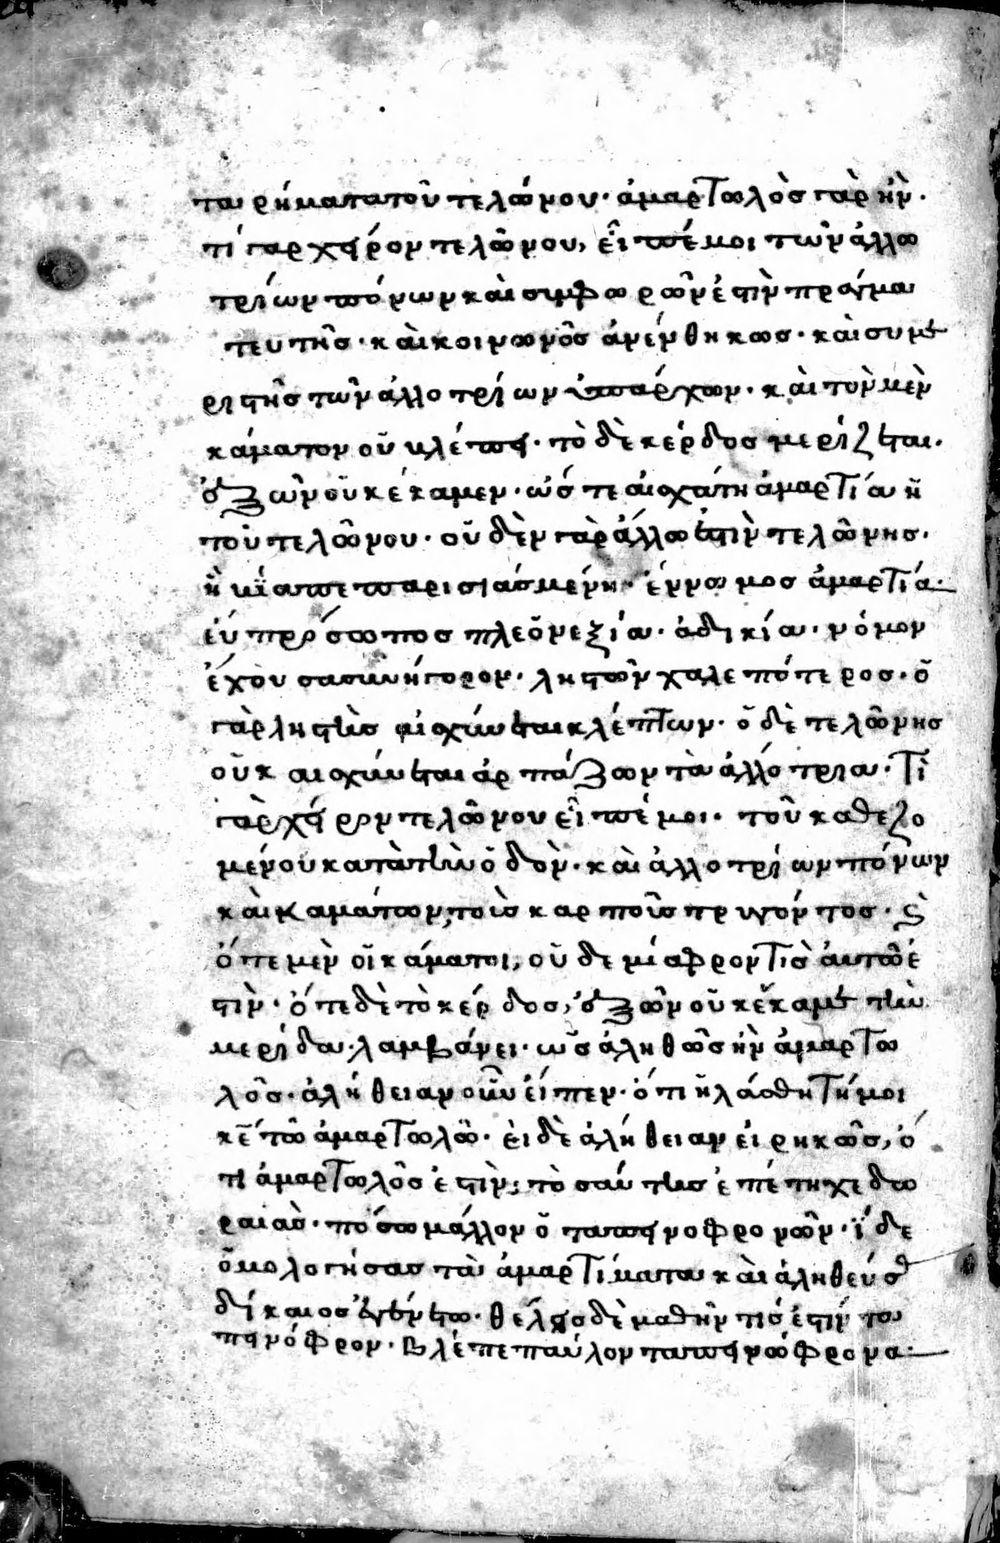 τα ρήματα τοῦ τελώνου· ἁμαρτωλὸς γὰρ ἦν·
τί γαρ χεῖρον τελώνου, εἰπέ μοι τῶν ἀλλο
τρίων πόνων καὶ συμφωρῶν ἐστὶν πραγμα
τευτῆς· καὶ κοινωνὸς ἀνενθηκωσ· καὶ συμε
ριστῆς τῶν ἀλλοτρίων ὑπαρχων· καὶ τὸν μὲν
κάματον οὐ κλέπτει· τὸ δὲ κέρδος μερίζεται·
ὁ ἐξ ὧν οὐκ ἔκαμεν· ὥστε αἰσχάτη ἁμαρτία ἡ
τοῦ τελώνου· οὐδὲν γὰρ ἄλλο ἐστὶν τελώνης·
ἢ πεπαρισιασμένη· ἔννωμος ἁμαρτία·
εὐπρόσωπος πλεονεξία· ἀδικία· νόμον
ἔχουσα συνήγορον· ληστῶν χαλεπότερος· ὁ
γὰρ ληστὴς αἰσχύνεται κλέπτων· ὁ δὲ τελώνης
οὐκ αισχύνεται ἁρπάζων τὰ ἀλλότρια· Τί
γὰρ χεῖρον τελώνου εἰπέ μοι· τοῦ καθεζο
μένου κατὰ τὴν ὁδὸν· καὶ ἀλλοτρίων πόνων
καὶ καμάτων, τοὺς καρποὺς τρυγόντος· καὶ
ὅτε μὲν οἱ κάματοι, οὐδεμία φροντὶς αὐτῶ ἐ
στὶν· ὅτε δὲ τὸ κέρδος, ἐξ ὧν οὐκ ἔκαμε τὴν
μερίδα, λαμβάνει· ὡς ἀληθῶς ἦν ἁμαρτω
λὸς· ἀλήθειαν οὖν εἶπεν· ὅτι ἡλάσθητί μοι
κε τῶ ἁμαρτωλῶ· εἰ δὲ ἀλήθειαν εἰρηκὼς, ὅ
τι ἁμαρτωλὸς ἐστὶν; τοσαύτης ἐπέτηχε δω
ραιὰς· πόσω μάλλον ὁ ταπεινοφρονῶν· ἴδε
ὁμολογήσας τὰ ἁμαρτήματα καὶ ἀληθεύσας
δίκαιος ἐγένετο· θέλεις δὲ μαθεῖν τίς ἐστίν τα
πεινόφρον· Βλέπε παύλον ταπεινώφρονα·